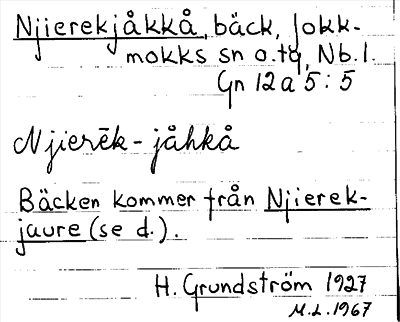 Njierekjåkkå, bäck, Jokk-
mokks sn o. tg, Nb. l.
Gn 12 a 5 : 5
Njierēk - jåhkå
Bäcken kommer från Njierek-
jaure (se d.).
H. Grundström 1927
M.L. 1967